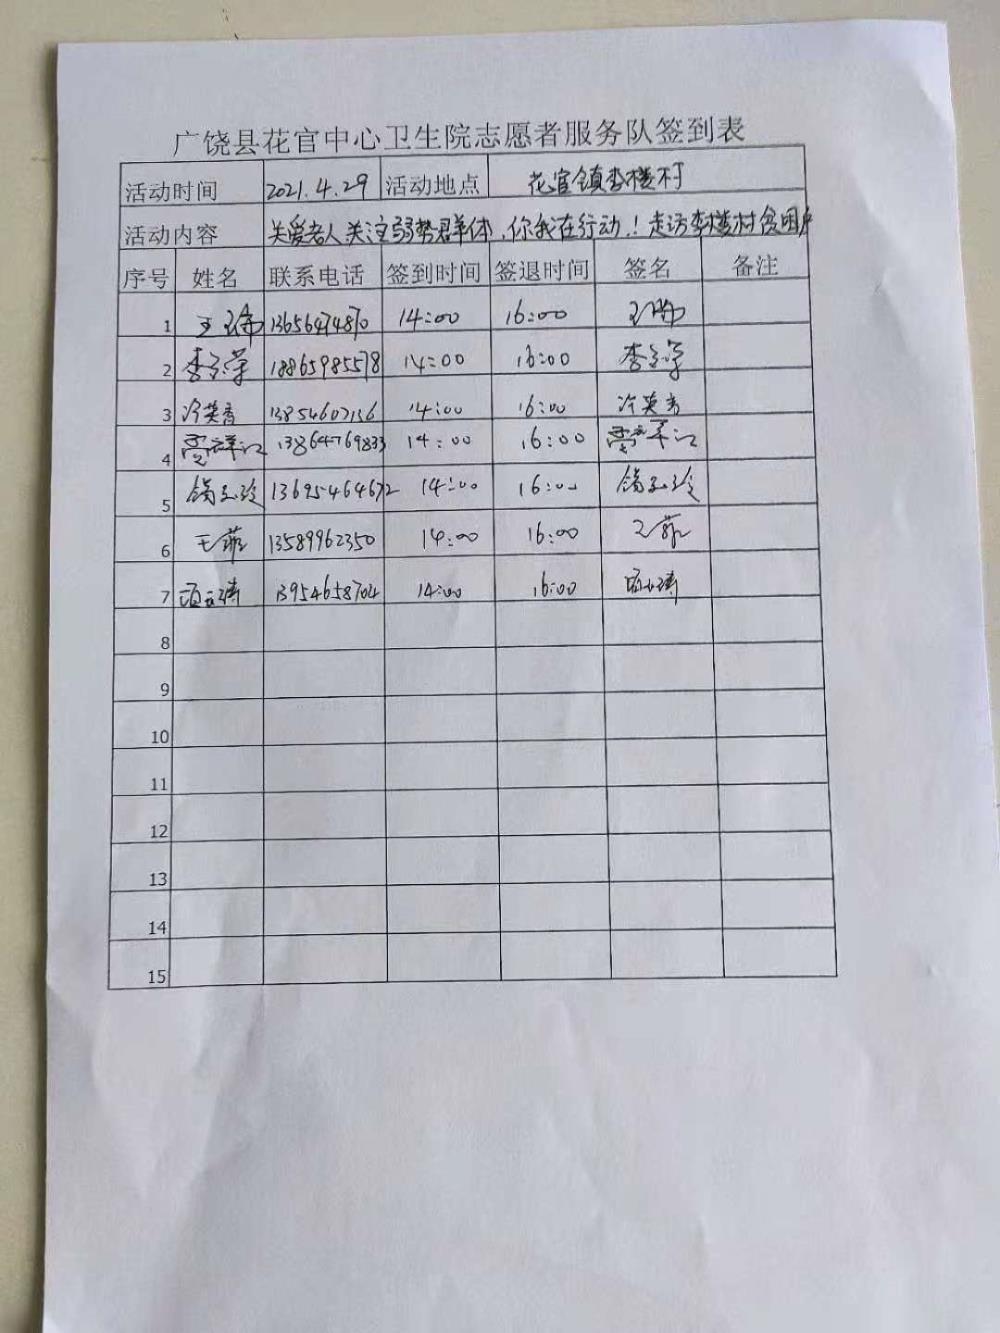 广饶县花官中心卫生院志愿者服务队签到表
活动时间 2021.4.29 活动地点 花官镇李楼村
活动内容 关爱老人关注弱势群体,你我在行动!走访李楼村贫困户
序号 姓名 联系电话 签到时间 签退时间 签名 备注
1 13656474870 14:00 16:00
2 18865985578 14:00 16:00
3 冷英秀 13854607136 14:00 16:00 冷英秀
4 13864769833 14:00 16:00
5 13695464672 14:00 16:00
6 王菲 13589962350 14:00 16:00 王菲
7 13954658704 14:00 16:00
8
9
10
11
12
13
14
15